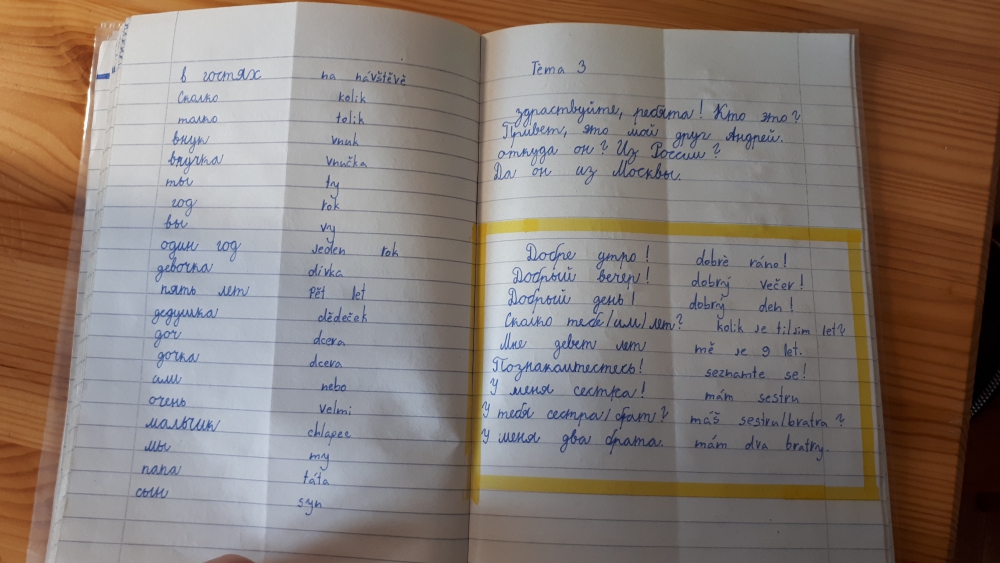 в гостях на návštěvě
сколко kolik
толко tolik
внук vnuk
внучка vnučka
ты ty
год rok
вы vy
один год jeden rok
девочка dívka
пять лет pět let
дедушка dědeček
доч dcera
дочка dcera
или nebo
очень velmi
мальчик chlapec
мы my
папа táta
сын syn
Тема 3
здраствуйте, ребята! Кто это?
Привет, это мой друг Андрей.
откуда он? Из России?
Да он из Москвы.
Добре утро! dobré ráno!
Добрый вечер! dobrý večer!
Добрый день! dobrý den!
Сколко тебе/им/лет? kolik je ti/jim let?
Мне девет лет mě je 9 let.
Познакомтестесь! seznamte se!
У меня сестра! mám sestru
У тебя сестра/брат? máš sestru/bratra?
У меня два брата. mám dva bratry.